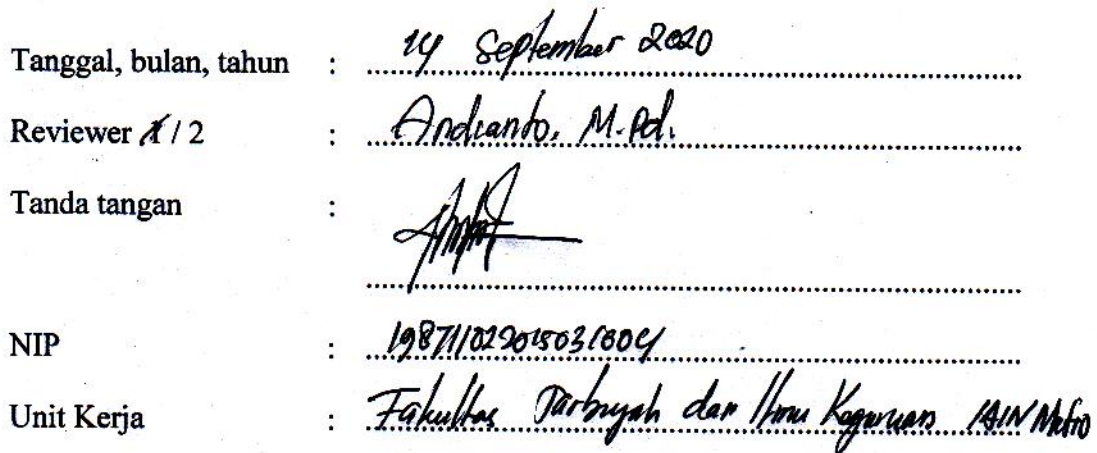 Tanggal, bulan, tahun : 14 September 2020
Reviewer 1 / 2 : Andianto, M.Pd.
Tanda tangan :
NIP : 198711022015031004
Unit Kerja : Fakultas Tarbiyah dan Ilmu Keguruan IAIN Metro